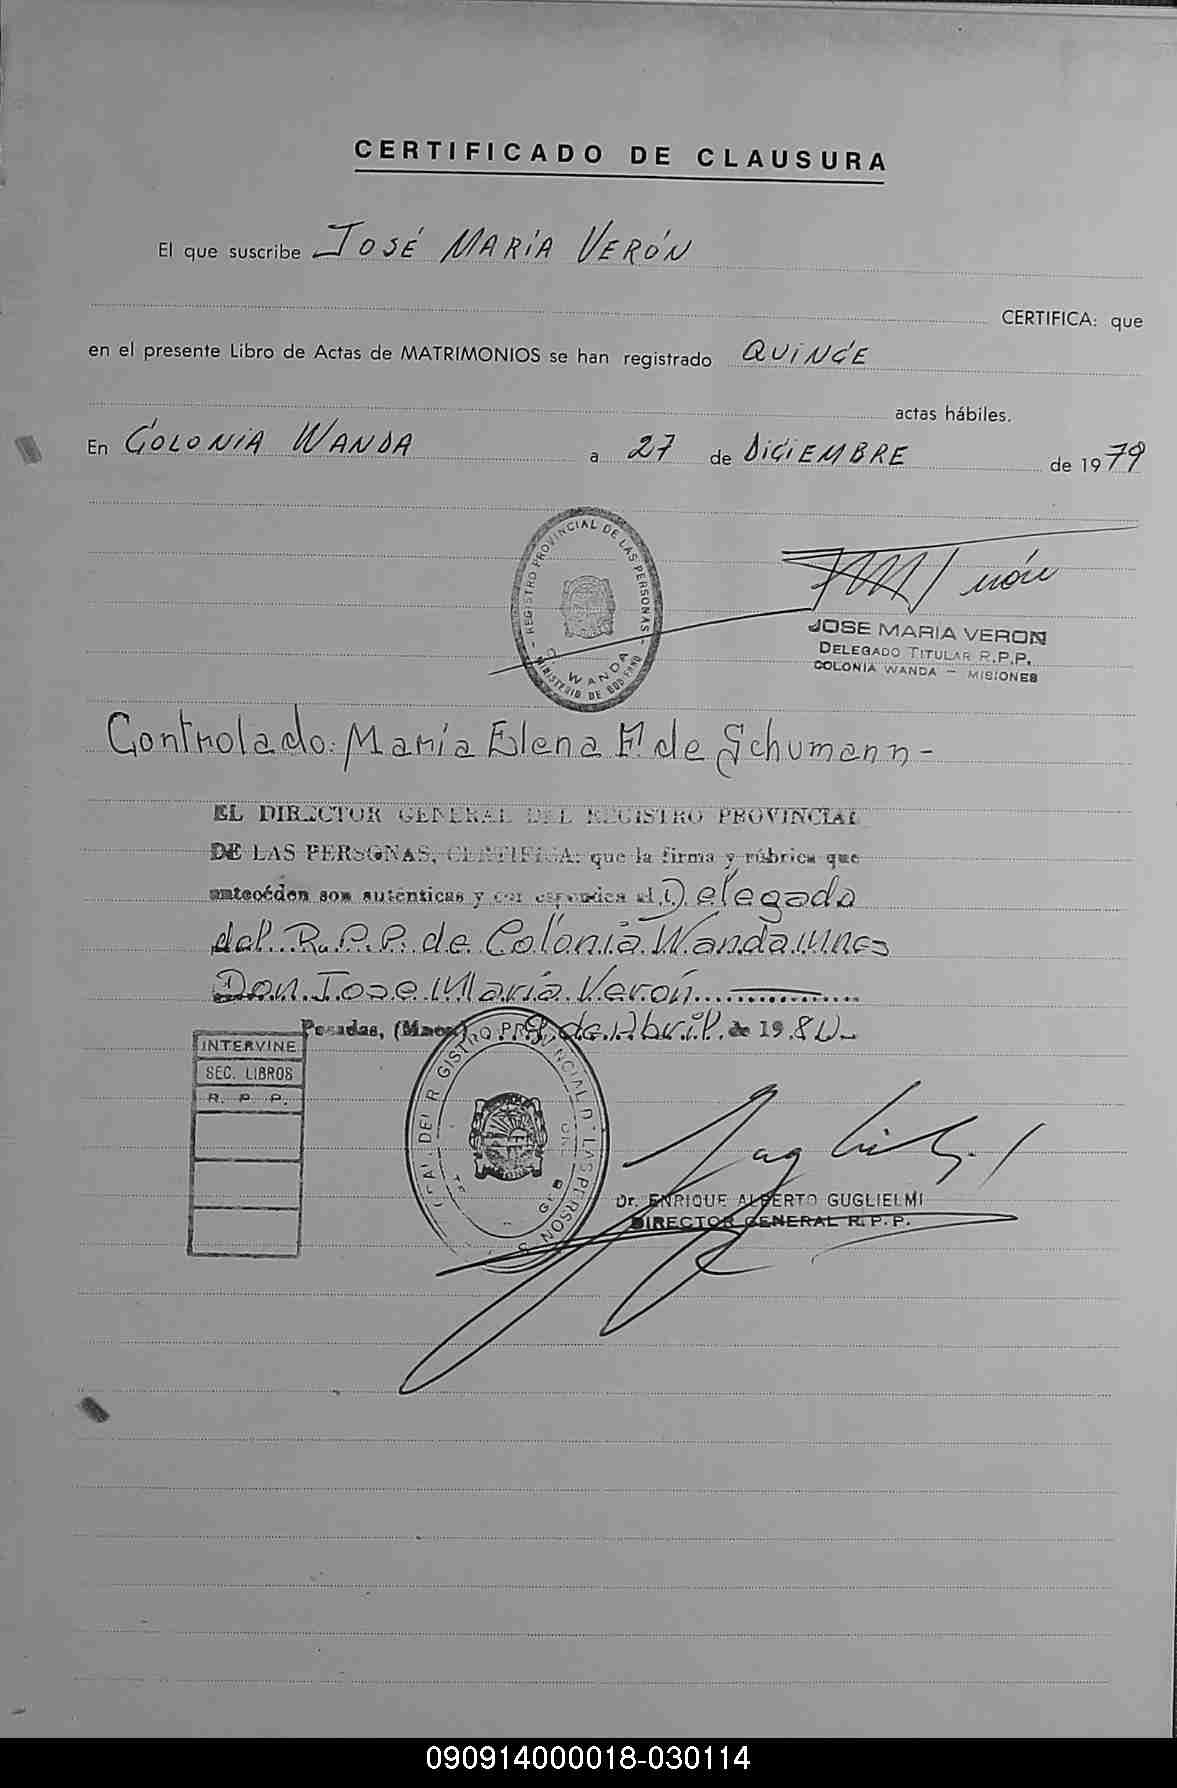 CERTIFICADO DE CLAUSURA
El que suscribe JOSÉ MARÍA VERÓN
CERTIFICA: que
en el presente Libro de Actas de MATRIMONIOS se han registrado QUINCE
actas hábiles.
En COLONIA WANDA a 27 de DICIEMBRE de 1979
REGISTRO PROVINCIAL DE LAS PERSONAS
WANDA
MINISTERIO DE GOBIERNO
Verón
JOSE MARIA VERON
DELEGADO TITULAR R.P.P.
COLONIA WANDA - MISIONES
Controlado: María Elena F. de Schumann-
EL DIRECTOR GENERAL DEL REGISTRO PROVINCIAL
DE LAS PERSONAS, CERTIFICA: que la firma y rúbrica que
anteceden son auténticas y corresponden al Delegado
del R.P.P. de Colonia Wanda Mnes
Don Jose María Verón
Posadas, (Mnes) 9 de Abril de 1980-
INTERVINE
SEC. LIBROS
R. P. P.
Dr. ENRIQUE ALBERTO GUGLIELMI
DIRECTOR GENERAL R.P.P.
090914000018-030114